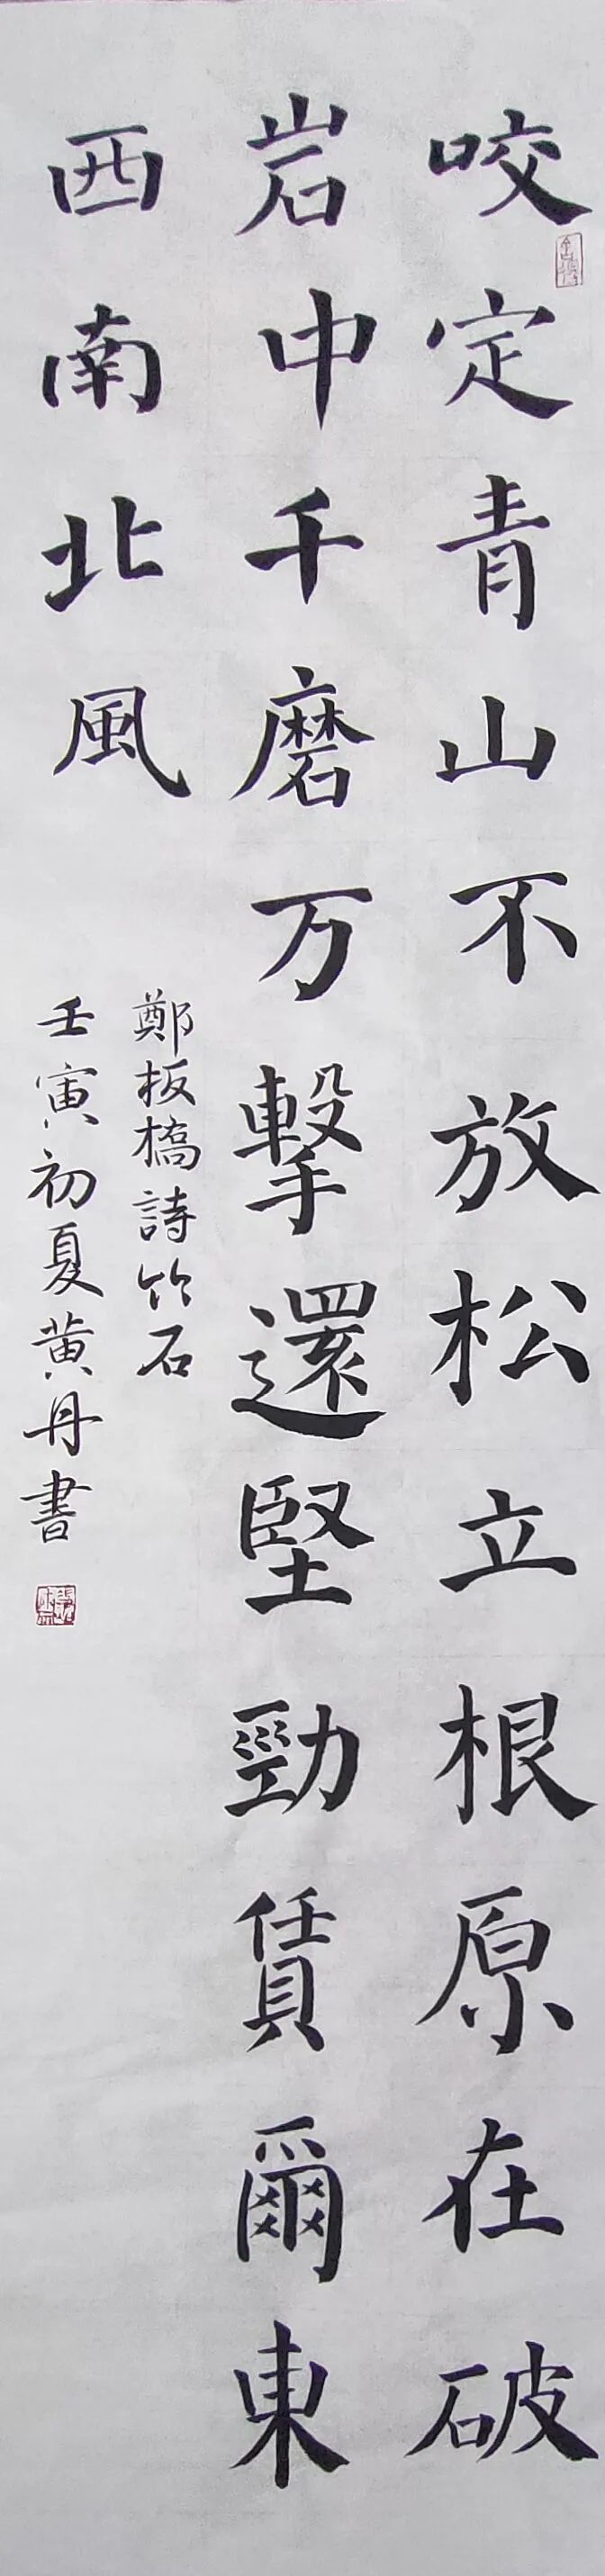 咬定青山不放松立根原在破
岩中千磨万擊還堅勁賃爾東
西南北風
鄭板橋詩竹石
壬寅初夏黄丹書